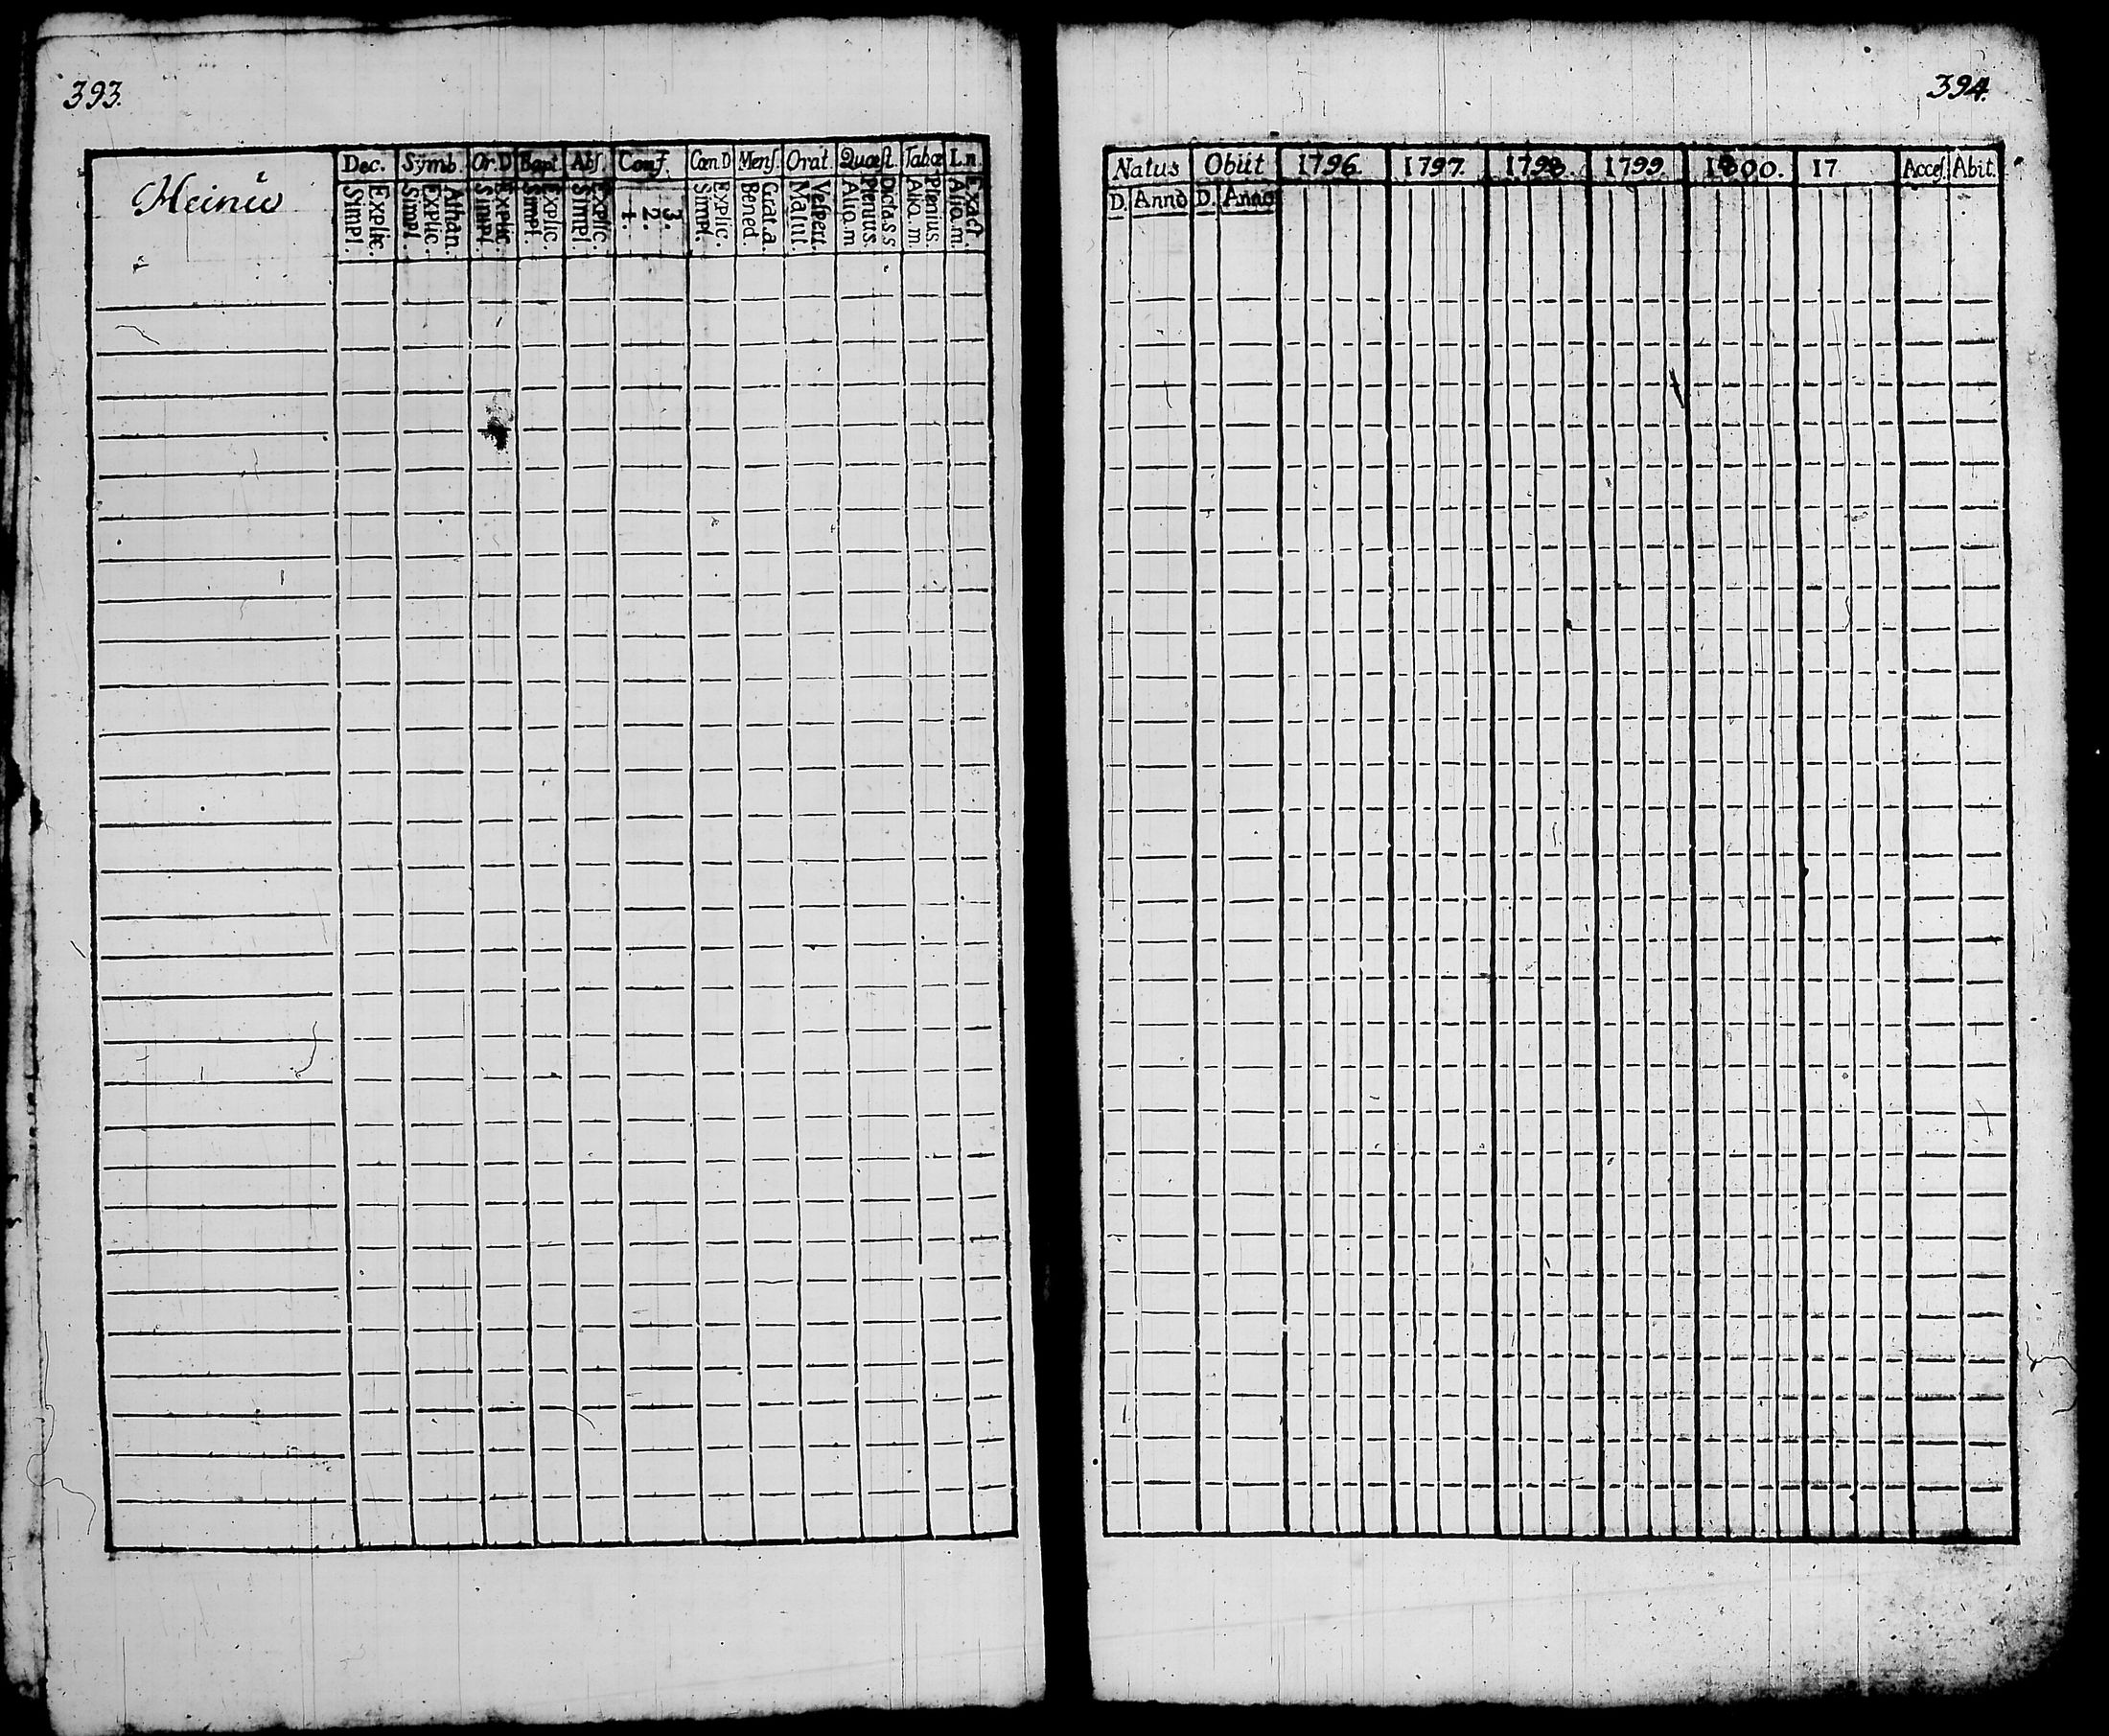 393.
Dec. Sÿmb. Or.D Bapt. Abſ. Conf. Cœn.D Menſ. Orat. Quæſt. Tabæ L.n.
Heinie
Simpl. Explic. Simpl. Explic. Athan. Simpl. Explic. Simpl. Explic. Simpl. Explic. 1. 2. 3. Simpl. Explic. Bened. Grat.a. Matut. Veſpert. Alia.m Plenius. Dicta.s.s Alia.m. Plenius. Alia.m. Exact.
394.
Natus Obiit 1796. 1797. 1798. 1799. 1800. 17 Acceſ. Abit.
D. Anno D. Anno